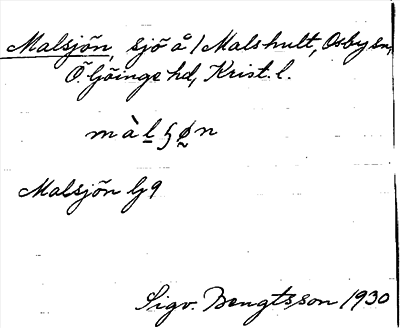 Malsjön, sjö å 1 Malshult, Osby sn,
Ö. Göinge hd, Krist. l.
màl̲ʂø̰n
Malsjön G9
Sigv. Bengtsson 1930